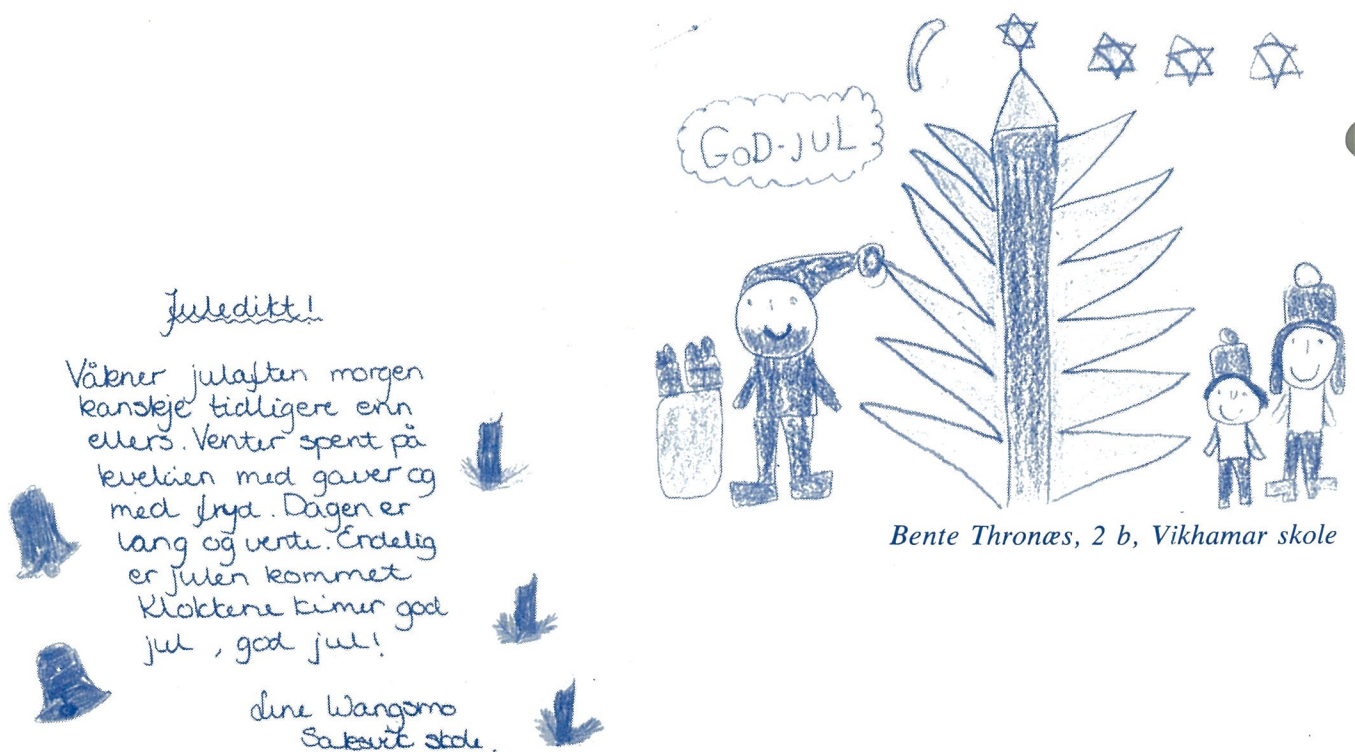 Juledikt!
Våkner julaften morgen
kanskje tidligere enn
ellers. Venter spent på
kvelden med gaver og
med fryd. Dagen er
lang og vente. Endelig
er julen kommet
Klokkene kimer god
jul, god jul!
Line Wangsmo
Saksvik skole.
GOD-JUL
Bente Thronæs, 2 b, Vikhamar skole